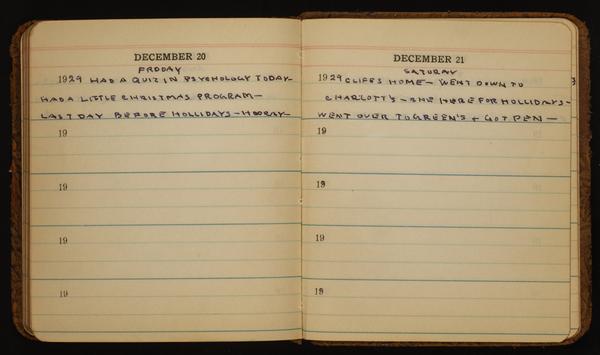 DECEMBER 20
FRODAY
1929 HAD A QUIZ IN PSYCHOLOGY TODAY-
HAD A LITTLE CHRISTMAS PROGRAM-
LAST DAY BEFORE HOLLIDAYS-HOORAY-
19
19
19
19
DECEMBER 21
SATURAY
1929 CLIFFS HOME- WENT DOWN TO
CHARLOTT'S-SHE HERE FOR HOLLIDAYS-
WENT OVER TO GREEN'S + GOT PEN-
19
19
19
19